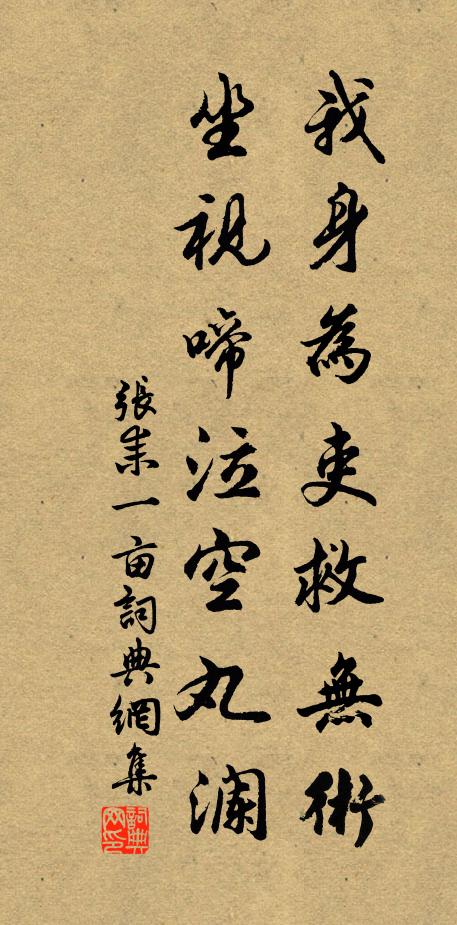 我身為吏救無術
坐視啼泣空丸瀾
張耒一亩詞典網集
詞典网印